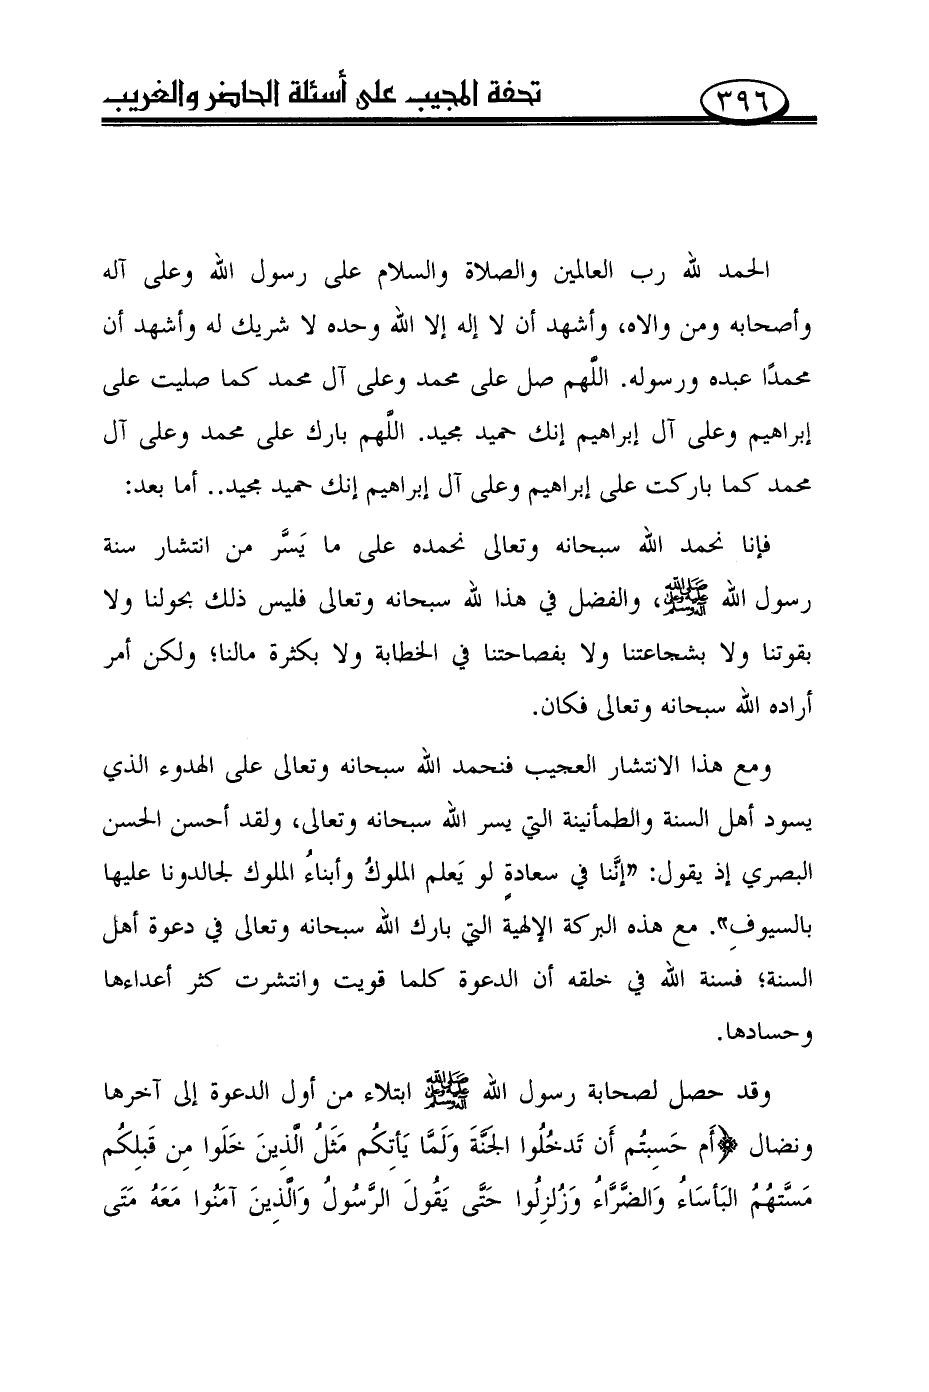 ٣٩٦ تحفة المجيب على أسئلة الحاضر والغريب
الحمد لله رب العالمين والصلاة والسلام على رسول الله وعلى آله
وأصحابه ومن والاه، وأشهد أن لا إله إلا الله وحده لا شريك له وأشهد أن
محمدًا عبده ورسوله. اللَّهم صل على محمد وعلى آل محمد كما صليت على
إبراهيم وعلى آل إبراهيم إنك حميد مجيد. اللَّهم بارك على محمد وعلى آل
محمد كما باركت على إبراهيم وعلى آل إبراهيم إنك حميد مجيد.. أما بعد:
فإنا نحمد الله سبحانه وتعالى نحمده على ما يَسَّر من انتشار سنة
رسول الله ﷺ، والفضل في هذا لله سبحانه وتعالى فليس ذلك بحولنا ولا
بقوتنا ولا بشجاعتنا ولا بفصاحتنا في الخطابة ولا بكثرة مالنا؛ ولكن أمر
أراده الله سبحانه وتعالى فكان.
ومع هذا الانتشار العجيب فنحمد الله سبحانه وتعالى على الهدوء الذي
يسود أهل السنة والطمأنينة التي يسر الله سبحانه وتعالى، ولقد أحسن الحسن
البصري إذ يقول: «إنَّنا في سعادةٍ لو يَعلم الملوكُ وأبناءُ الملوك لجالدونا عليها
بالسيوفِ». مع هذه البركة الإلهية التي بارك الله سبحانه وتعالى في دعوة أهل
السنة؛ فسنة الله في خلقه أن الدعوة كلما قويت وانتشرت كثر أعداءها
وحسادها.
وقد حصل لصحابة رسول الله ﷺ ابتلاء من أول الدعوة إلى آخرها
ونضال ﴿أَم حَسِبتُم أَن تَدخُلُوا الجَنَّةَ وَلَمَّا يَأتِكُم مَثَلُ الَّذِينَ خَلَوا مِن قَبلِكُم
مَسَّتهُمُ البَأسَاءُ وَالضَّرَّاءُ وَزُلزِلُوا حَتَّى يَقُولَ الرَّسُولُ وَالَّذِينَ آمَنُوا مَعَهُ مَتَى